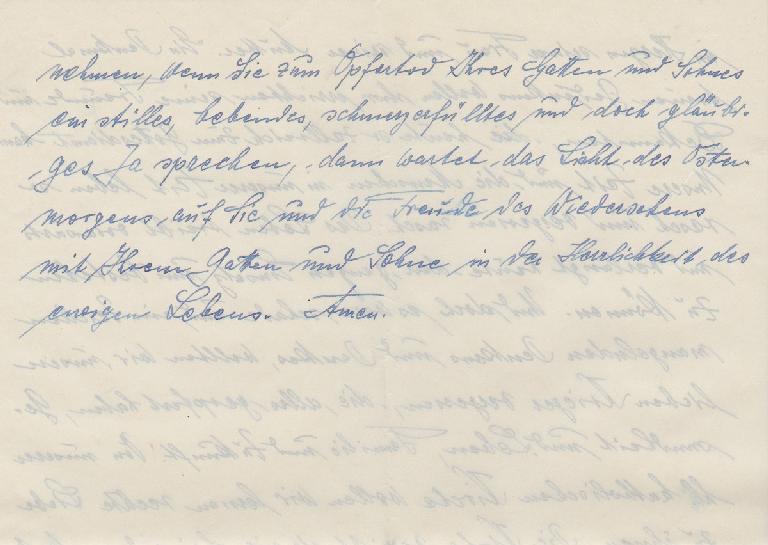 nehmen, wenn Sie zum Opfertod Ihres Gatten und Sohnes
ein stilles, bebendes, schmerzerfülltes und doch gläubi-
ges Ja sprechen, dann wartet das Licht des Oster-
morgens auf Sie und die Freude des Wiedersehens
mit Ihrem Gatten und Sohne in der Herrlichkeit des
ewigen Lebens. Amen.